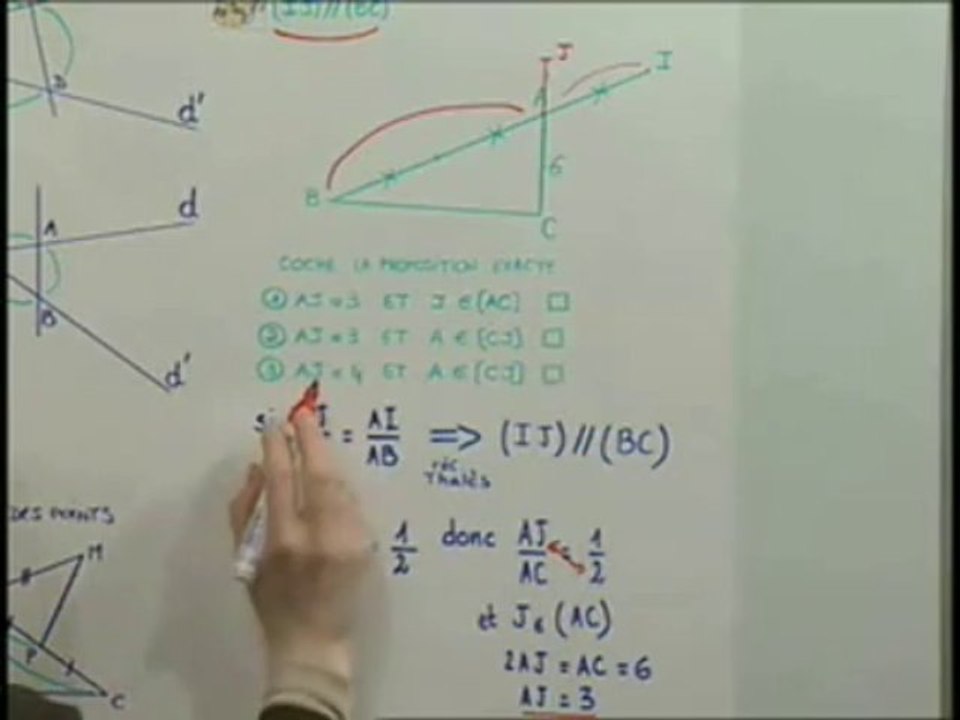 (IJ)//(BC)
J
I
A
D
d'
6
B
C
d
A
COCHE LA PROPOSITION EXACTE
① AJ = 3 ET J ∈ (AC) □
② AJ = 3 ET A ∈ [CJ] □
③ AJ = 4 ET A ∈ [CJ] □
B
d'
si = AI/AB ⟹ (IJ)//(BC)
réc Thalès
DES POINTS
1/2 donc AJ/AC = 1/2
M
et J ∈ (AC)
P
2AJ = AC = 6
C
AJ = 3